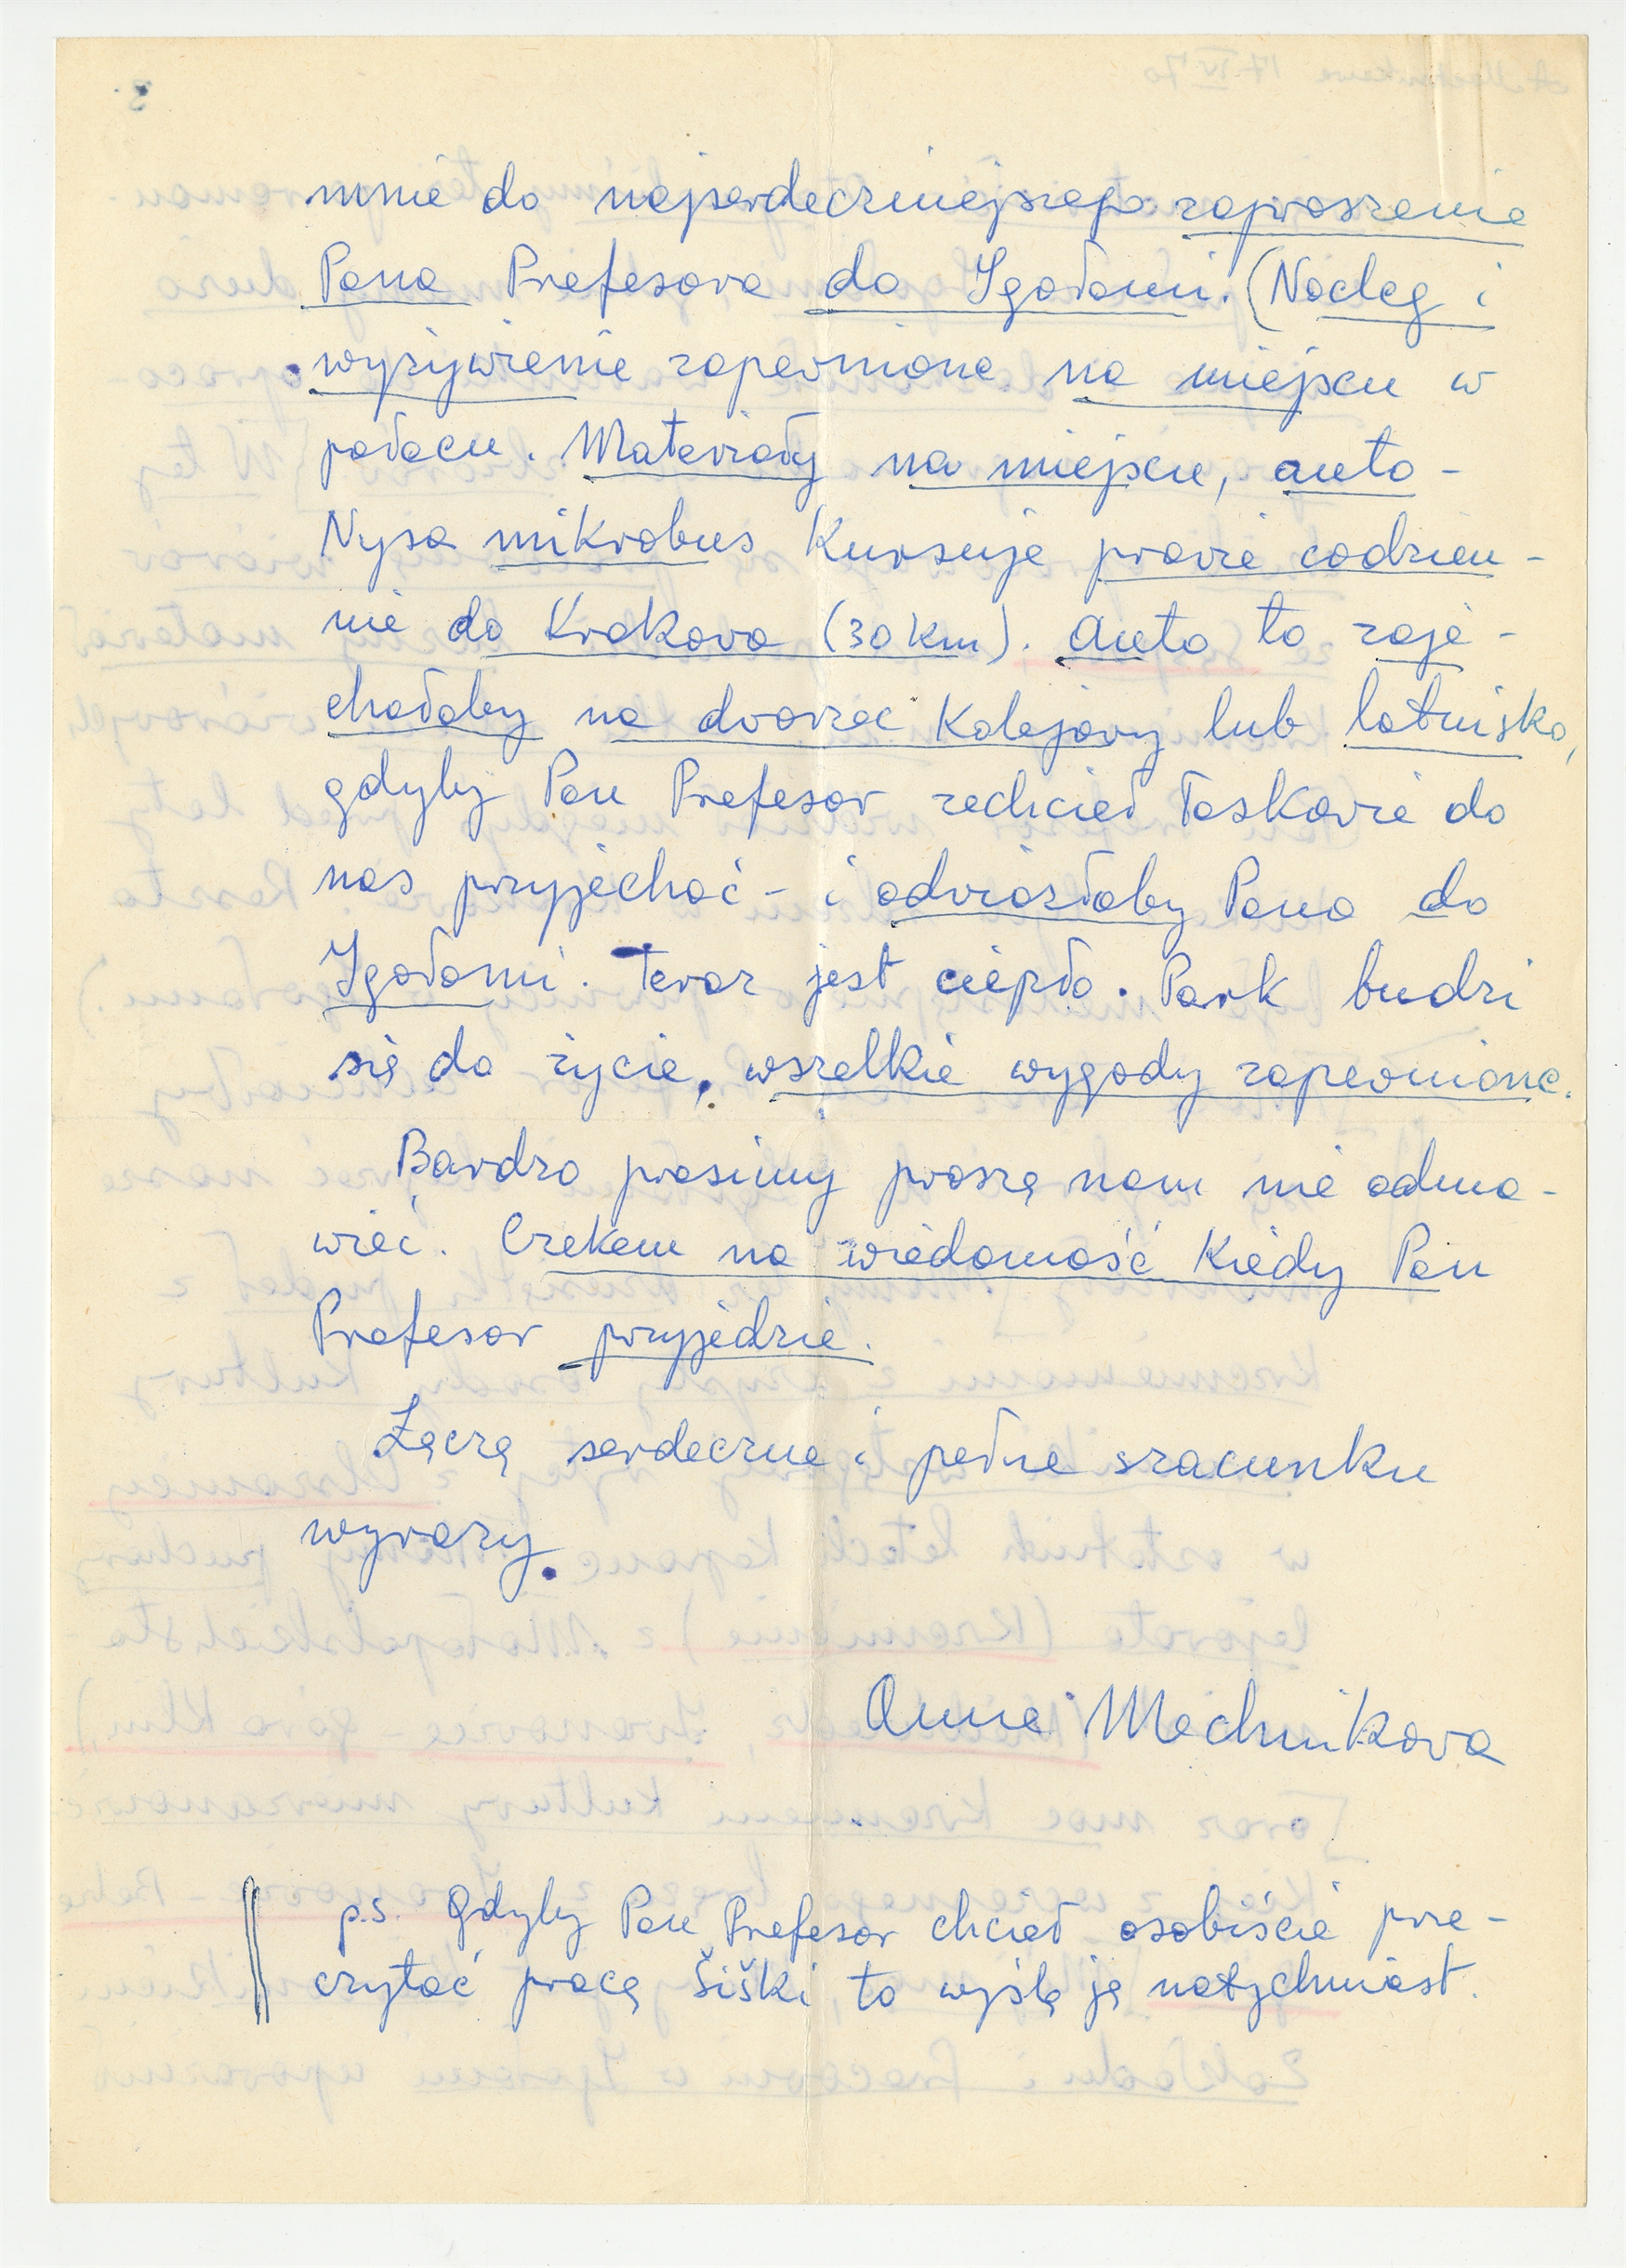 mnie do najserdeczniejszego zaproszenia
Pana Profesora do Igołomi. (Nocleg i
wyżywienie zapewnione na miejscu w
pałacu. Materiały na miejscu, auto-
Nysa mikrobus kursuje prawie codzien-
nie do Krakowa (30 km). Auto to zaje-
chałoby na dworzec kolejowy lub lotnisko,
gdyby Pan Profesor zechciał łaskawie do
nas przyjechać - i odwiozłoby Pana do
Igołomi. Teraz jest ciepło. Park budzi
się do życia, wszelkie wygody zapewnione.
Bardzo prosimy proszę nam nie odma-
wiać. Czekam na wiadomość kiedy Pan
Profesor przyjedzie.
Łączę serdeczne i pełne szacunku
wyrazy.
Anna Machnikowa
p.s. Gdyby Pan Profesor chciał osobiście prze-
czytać pracę Šiški to wyślę ją natychmiast.